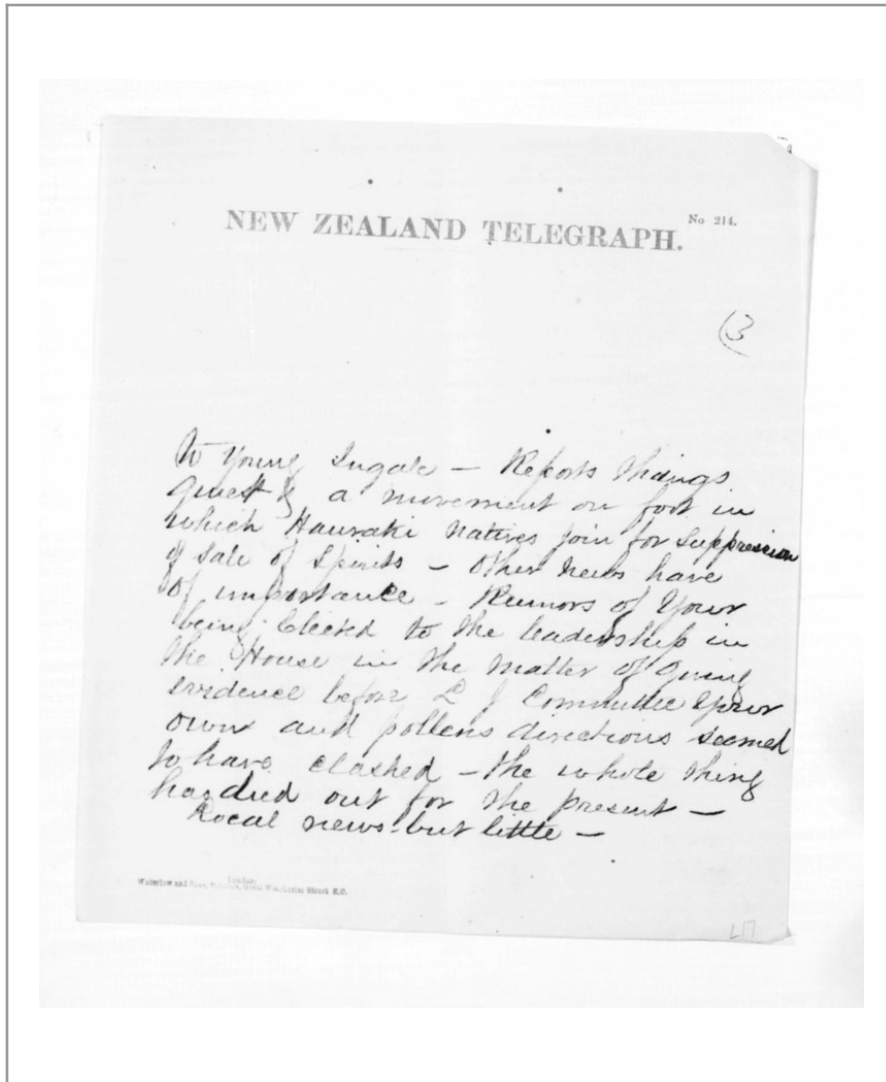 No 214.
NEW ZEALAND TELEGRAPH.
(3
to Young Ingale — Reports things
quiet & a movement on foot in
which Hauraki natives join for suppression
of sale of Spirits — Other news have
of importance — Rumors of Your
being Elected to the leadership in
the House in the matter of giving
evidence before L J Committee Your
own and pollens directions seemed
to have clashed — the whole thing
handed out for the present —
Local news but little —
London
Waterlow and Sons, Great Winchester Street E.C.
L17